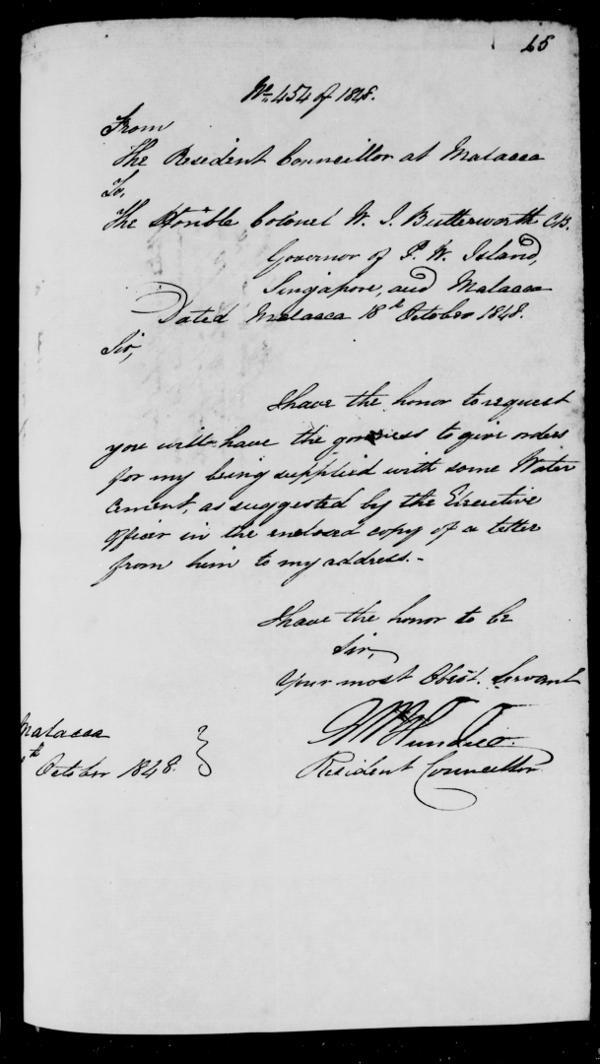 65
No. 454 of 1848.
From
The Resident Councillor at Malacca
To,
The Honble Colonel W. J. Butterworth C.B.
Governor of P. W. Island,
Singapore, and Malacca
Dated Malacca 18th October 1848.
Sir,
I have the honor to request
you will have the goodness to give orders
for my being supplied with some Water
Cement, as suggested by the Executive
Officer in the enclosed copy of a letter
from him to my address.-
I have the honor to be
Sir,
Your most Obedt. Servant
Malacca
th
October 1848.
Resident Councillor